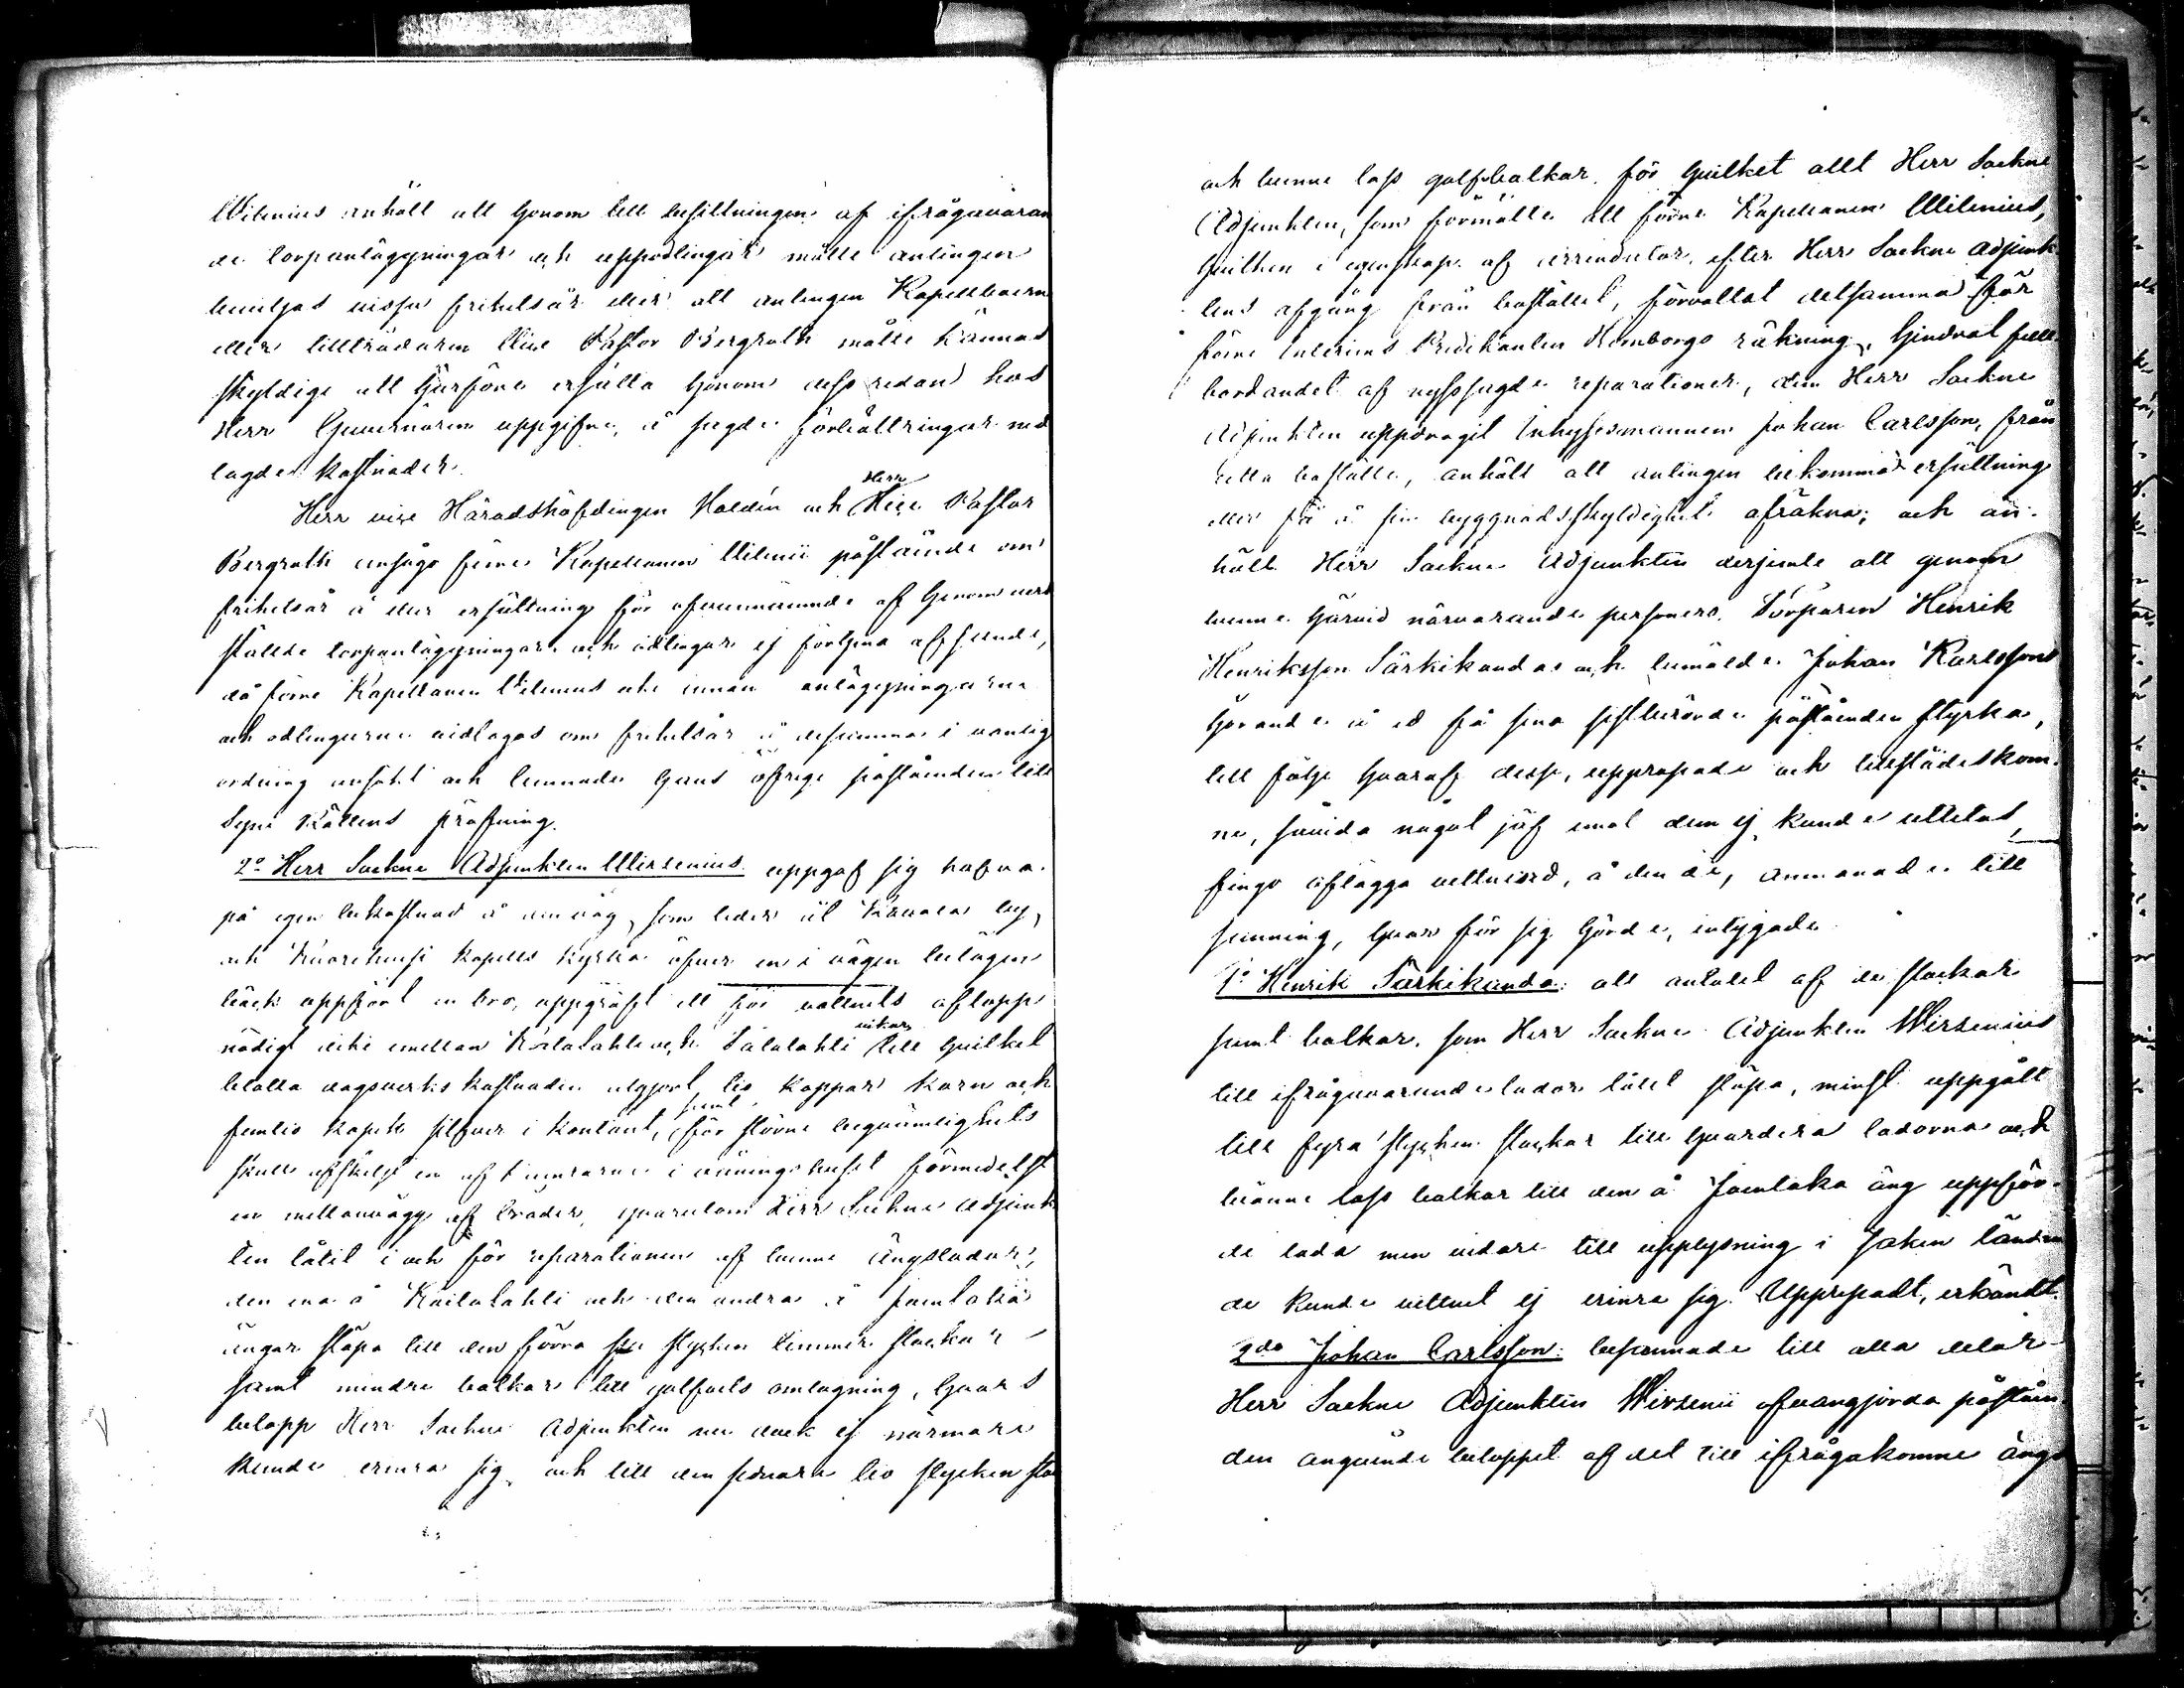 Wilenius anhöll att honom till besittningen af ifrågavaran
de torpanläggningar och uppodlingar måtte antingen
beviljas vissa frihetsår eller att antingen Kapellboerne
eller tillträdaren Vice Pastor Bergroth måtte kännas
skyldige att härföre ersätta honom dess redan hos
Herr Guvernören uppgifne, å sagde förbättringar ned
lagde kostnader.
Herr vice Häradshöfdingen Molin och Herr Vice Pastor
Bergroth ansågo förre Kapellanen Wilenii påstående om
frihetsår å eller ersättning för ofvannämnde af honom verk
stälde torpanläggningar och odlingar ej förtjena afseende,
då förre Kapellanen Wilenius icke innan anläggningarne
och odlingarne vidtogos om frihetsår å desamma i vanlig
ordning ansökt och lemnade hans öfrige påståenden till
Syne Rättens pröfning.
2o Herr Sockne Adjunkten Wirzenius uppgaf sig hafva
på egen bekostnad å en väg, som leder til by,
och kapells kyrka öfver en i vägen belägen
bäck uppfört en bro, uppgräft ett för vattnets aflopp
nödigt dike emellan och Sälälahti åkrar till hvilket
betalta dagsverks kostnaden utgjort tio kappar korn och
femtio kopek silfver i kontant, samt för större beqvämlighets
skull afskilgt en af kamrarne i åningshuset förmedelst
en mellanvägg af bräder, hvarutom Herr Sockne Adjunk
ten låtit i och för reparationen af tvenne ängslador,
den ena å Koilalahti och den andra å Jamlaka
ängar släpa till den förra sju stycken timmer stockar
samt mindre balkar till golfvets omlagning, hvars
belopp Herr Sockne Adjunkten nu dock ej närmare
kunde erinra sig och till den sednare tio stycken sto
och tvenne lass golfsbalkar, för hvilket allt Herr Sockne
Adjunkten, som förmälte att förre Kapellanen Wilenius,
hvilken i egenskap af arrendator, efter Herr Sockne Adjunk
tens afgång från bostället, förvaltat detsamma för
förre Interims Predikanten Hemborgs räkning, hindrat full
bordandet af nyssagde reparationer, dem Herr Sockne
Adjunkten uppdragit Inhysesmannen Johan Carlsson, från
detta boställe, anhöll att antingen bekomma ersättning
eller få å sin byggnadsskyldighet afräkna; och an
höll Herr Sockne Adjunkten derjemte att genom
tvenne härvid närvarande personers, Torparen Henrik
Henriksson Särkikandas och bemälde Johan Karlssons
hörande å ed få sina sistberörde påståenden styrka,
till följe hvaraf desse, uppropade och tillstädeskom
ne, sävida något jäf emot dem ej kunde uttetas,
fingo aflägga vittnesed, å den de, anmanade till
sanning, hvar för sig hörde, intygade
1o Henrik Särkikanda: att antalet af de stockar
samt balkar, som Herr Sockne Adjunkten Wirzenius
till ifrågavarande lador låtit släpa, minst uppgått
till fyra stycken stockar till hvardera ladorna och
tvänne lass balkar till den å Jamlaka äng uppför
de lada men vidare till upplysning i saken länan
de kunde vittnet ej erinra sig. Upprepadt, erkändt.
2do Johan Carlsson: besannade till alla delar
Herr Sockne Adjunkten Wirzenii ofvangjorda påståen
den angående beloppet af det till ifrågakomne ängs